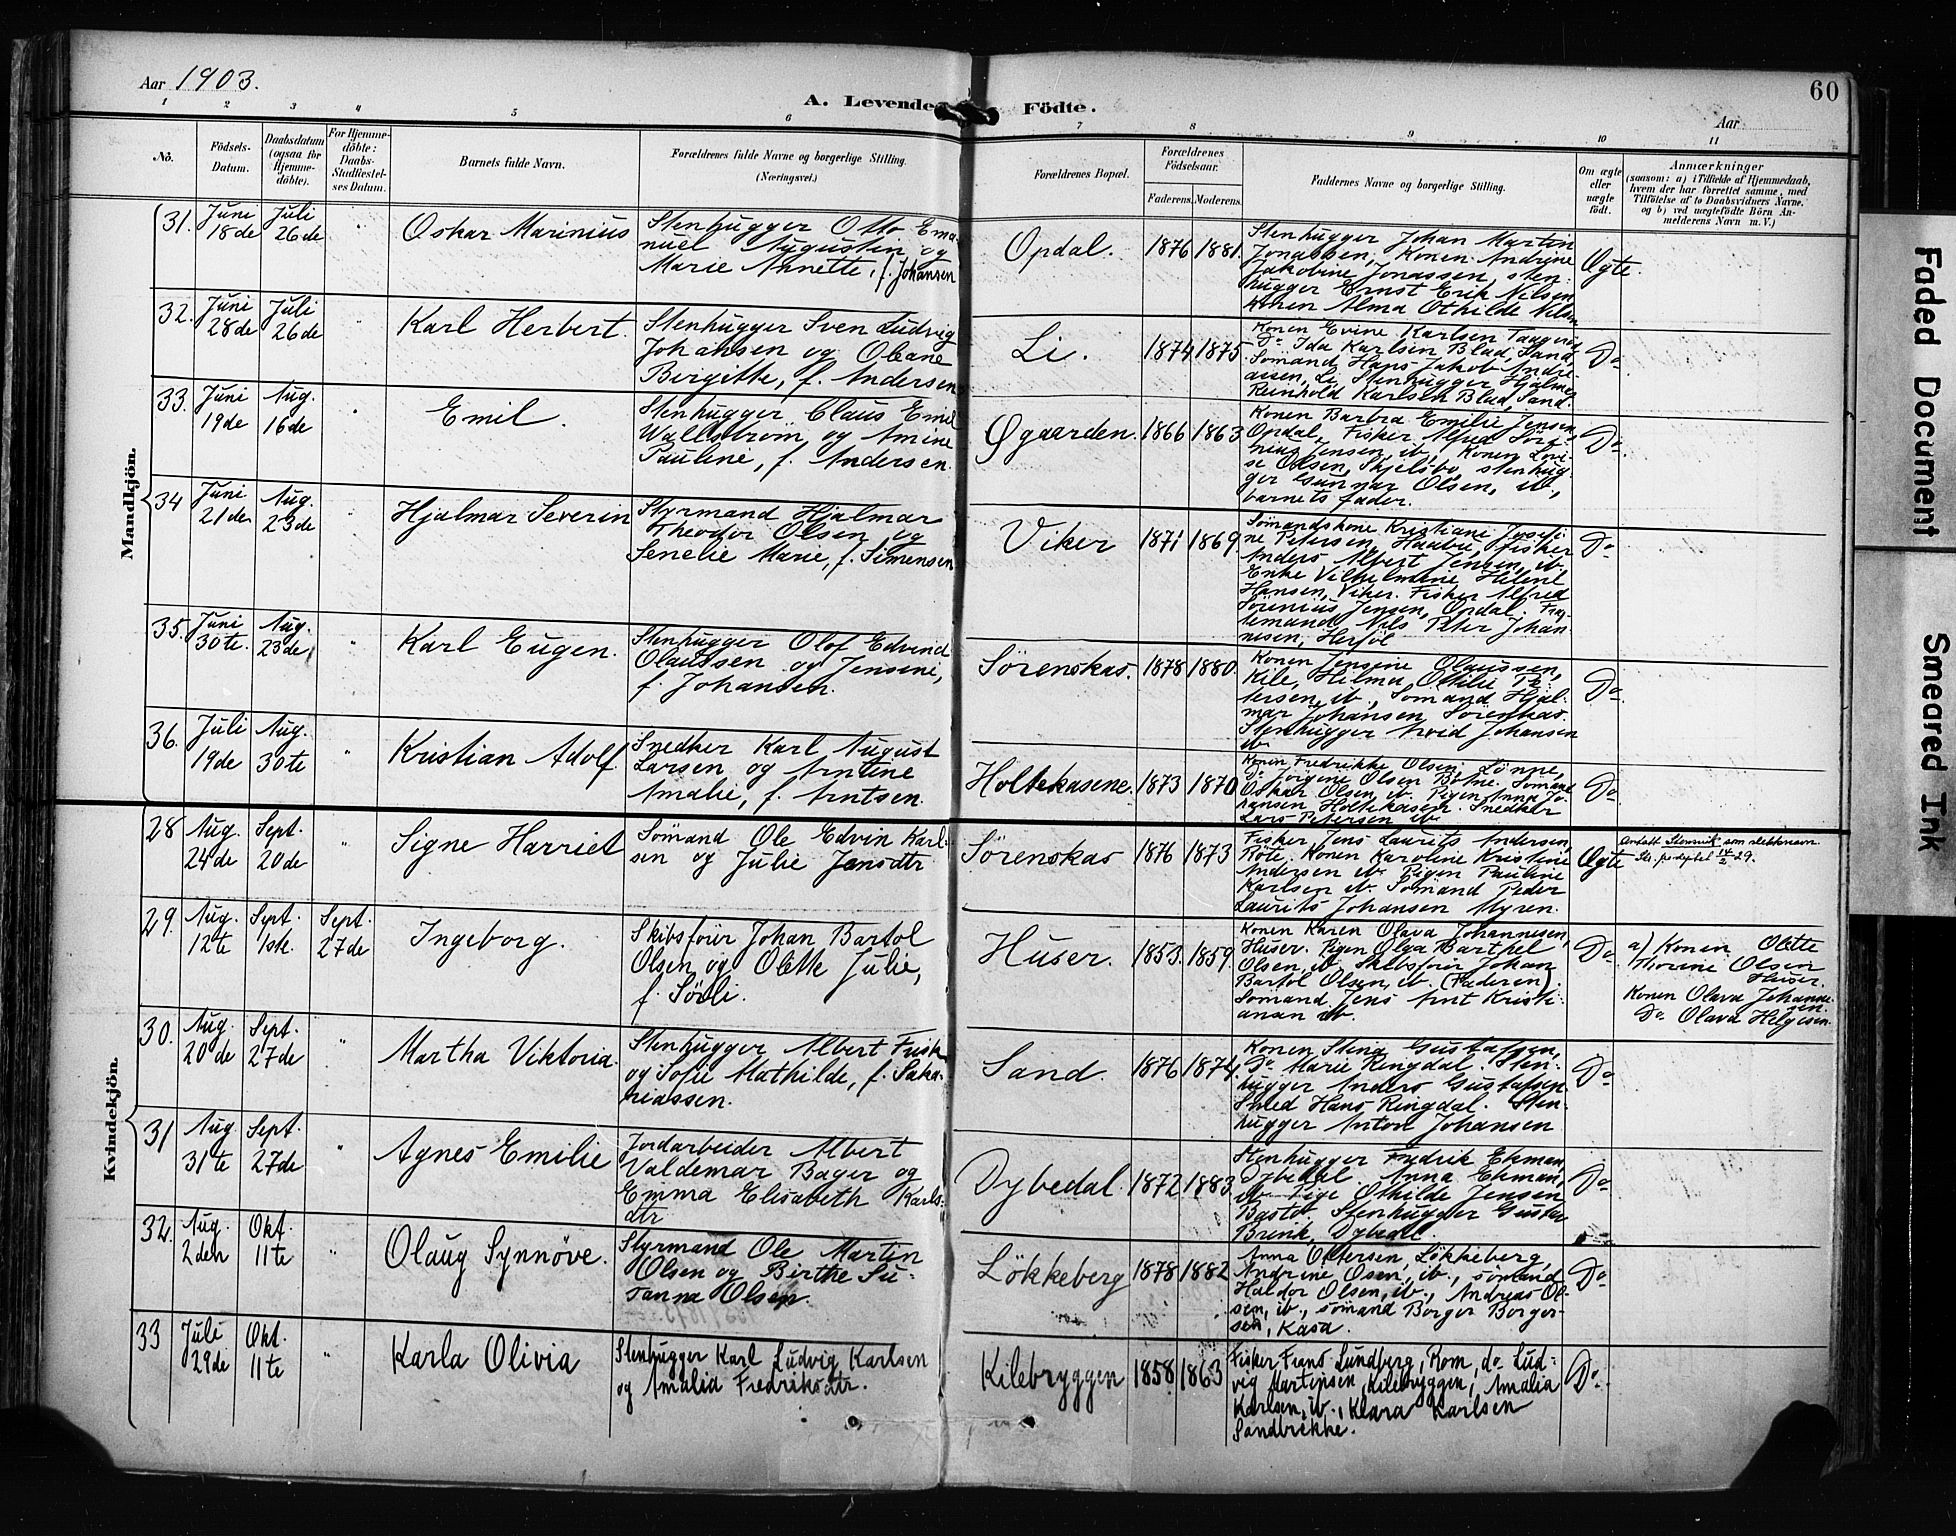 Aar 1903.
A. Levende Födte.
60
Aar
1 2 3 4 5 6 7 8 9 10 11
No.
Födsels-Datum.
Daabsdatum (ogsaa for Hjemme-döbte).
For Hjemme-döbte: Daabs-Stadfæstel-ses Datum.
Barnets fulde Navn.
Forældrenes fulde Navne og borgerlige Stilling. (Næringsvei.)
Forældrenes Bopæl.
Forældrenes Födselsaar.
Faderens. Moderens.
Faddernes Navne og borgerlige Stilling.
Om ægte eller uægte födt.
Anmærkninger
(saasom: a) i Tilfælde af Hjemmedaab, hvem der har forrettet samme, med Tilföielse af to Daabsvidners Navne. og b) ved uægtefödte Börn An-melderens Navn m. V.)
Mandkjön.
31. Juni 18de Juli 26de " Oskar Marinius
Stenhugger Otto Ema-
nuel Augustin og
Marie Annette, f. Johansen
Opdal. 1876 1881.
Stenhugger Johan Martin
Jonassen, Konen Andrine
Jakobine Jonassen, sten-
hugger Ernst Erik Nilsen
konen Alma Othilde Nilsen
Ægte.
32. Juni 28de Juli 26de " Karl Herbert.
Stenhugger Sven Ludvig
Johansen og Oleane
Birgitte, f. Andersen
Li. 1874 1875.
Konen Evine Karlsen
Do Ida Karlsen Blad, Sand,
Sömand Hans Jakob Andre-
asen, Li, Stenhugger Hjalmar
Reinhold Karlsen Blad, Sand.
Do
33. Juni 19de Aug. 16de " Emil.
Stenhugger Claus Emil
Wallström og Amine
Pauline, f. Andersen.
Øgaarden. 1866 1863
Konen Barbra Emilie Jensen,
Opdal, Fisker Alfred Söre-
nius Jensen, ib., Konen Lovi-
se Olsen, Skjelsbo, stenhug-
ger Gunnar Olsen, ib.,
barnets fader.
Do
34 Juni 21de Aug. 23de " Hjalmar Severin
Styrmand Hjalmar
Theodor Olsen og
Senelie Marie, f. Simensen
Viker 1871 1869.
Sömandskone Kristiane Josefi-
ne Petersen, Haabu, fisker
Anders Albert Jensen, ib.
Enke Vilhelmine Helene
Hansen, Viker. Fisker Alfred
Sörenius Jensen, Opdal.
Nils Peter Johan-
nesen, Herföl
Do
35. Juni 30te. Aug. 23de " Karl Eugen.
Stenhugger Olof Edvind
Olaussen og Jensine,
f. Johansen.
Sörenskas. 1878 1880.
Konen Jensine Olaussen,
Kile, Hilma Othilie Pe-
tersen, ib., Sömand Hjal-
mar Johansen Sörenskas.
Stenhugger Arvid Johansen
ib.
Do
36. Juli 19de Aug. 30te " Kristian Adolf
Snedker Karl August
Larsen og Antine
Amalie, f. Arntsen.
Holtekasene. 1873 1870
Konen Fredrikke Olsen Lönne,
Do Jörgine Olsen Botne. Sömand
Oskar Olsen, ib. Pigen Anna Jo-
hansen Holtekasen. Snedker
Lars Petersen ib.
Do
Kvindekjön.
28 Aug. 24de Sept. 20de " Signe Harriet
Sömand Ole Edvin Karl-
sen og Julie Jansdtr
Sörenskas 1876 1873
Fisker Jens Laurits Andersen,
Röte. Konen Karoline Kristine
Andersen ib. Pigen Pauline
Karlsen ib. Sömand Peder
Laurits Johansen Myren.
Ægte
Antatt Stensvik som slektsnavn.
14/2 29.
29. Aug. 12te Sept. 1ste. Sept. 27de Ingeborg.
Skibsförer Johan Bartol
Olsen og Olette Julie,
f. Sörli.
Huser. 1853. 1859.
Konen Karen Olava Johannesen,
Huser. Pigen Olga Barthel
Olsen, ib. Skibsförer Johan
Bartol Olsen, ib. (Faderen).
Sömand Jens Arnt Kristi-
ansen ib.
Do
a) Konen Olette
Thorine Olsen
Huser.
Konen Olava Johanne-
sen.
Do Olava Helgesen.
30. Aug. 20de Sept. 27de " Martha Viktoria.
Stenhugger Albert Fusk
og Sofie Mathilde, f. Saka-
riassen.
Sand. 1876 1874.
Konen Stina Gustafsen,
Do Marie Ringdal. Sten-
hugger Anders Gustafsen
Smed Hans Ringdal. Sten-
hugger Anton Johansen
Do
31 Aug. 31te Sept. 27de " Agnes Emilie
Jordarbeider Albert
Valdemar Bager og
Emma Elisabeth Karls-
dtr
Dybedal. 1872 1883
Stenhugger Fredrik Ekman,
Dybedal. Anna Ekman,
ib. Pige Othilde Jensen
Bastö. Stenhugger Gustav
Brink, Dybedal.
Do
32. Aug. 2den Okt. 11te " Olaug Synnöve.
Styrmand Ole Martin
Olsen og Birthe Su-
sanna Olsen.
Lökkeberg 1878 1882
Anna Ottersen, Lökkeberg,
Andrine Osen, ib., sömand
Haldor Olsen, ib., Andreas Ol-
sen, ib., sömand Borger Borger-
sen, Kasa.
Do
33 Juli 29de Okt. 11te " Karla Olivia
Stenhugger Karl Ludvig Karlsen
og Amalia Fredriksdtr.
Kilebryggen 1858 1863
Fisker Frans Lundberg, Rom, do Lud-
vig Martinsen, Kilebryggen, Amalia
Karlsen, ib., Klara Karlsen
Sandbrekke.
Do
Faded Document
Smeared Ink